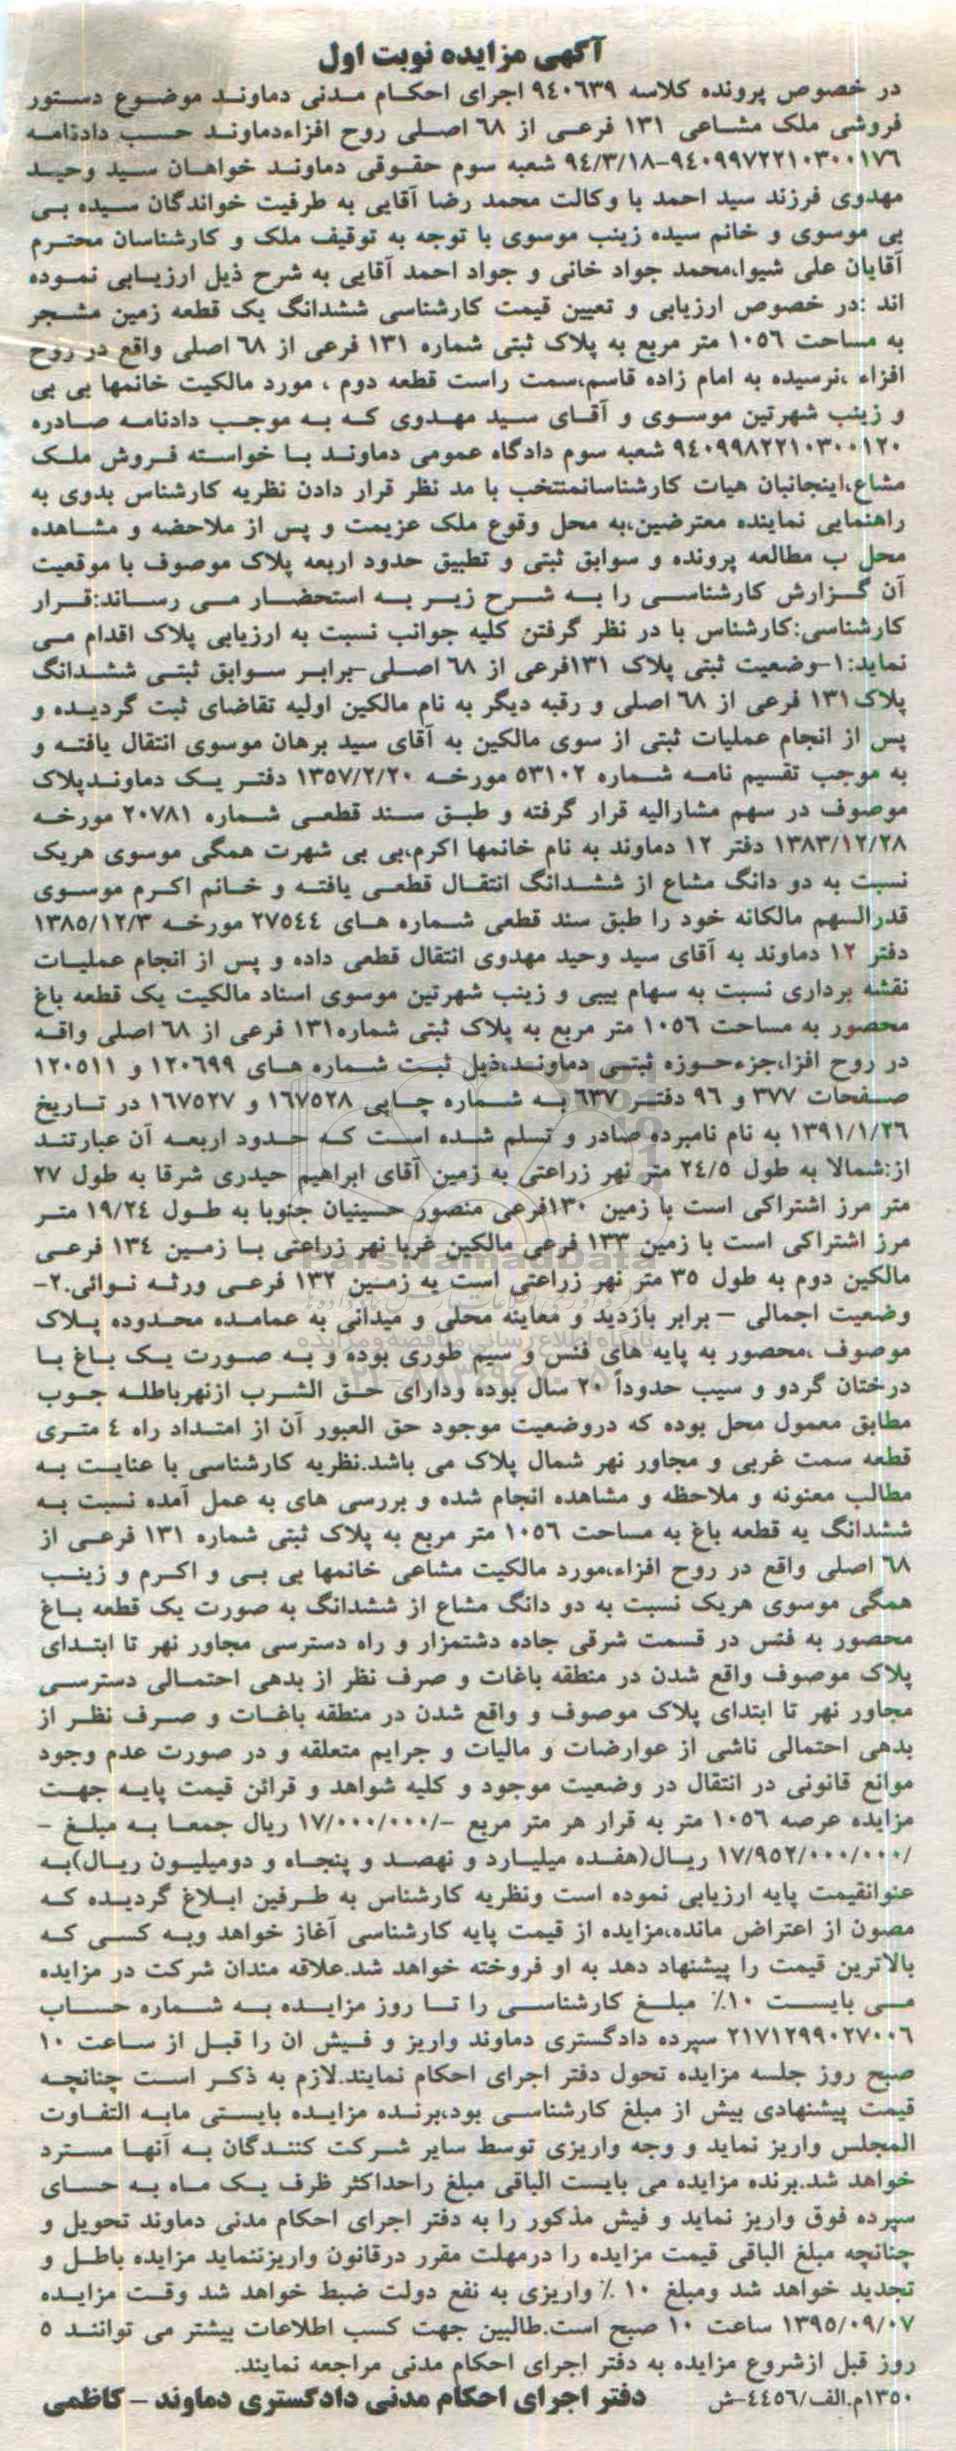 آگهی مزایده نوبت اول
در خصوص پرونده کلاسه ۹۴۰۶۳۹ اجرای احکام مدنی دماوند موضوع دستور
فروشی ملک مشاعی ۱۳۱ فرعی از ۶۸ اصلی روح افزاءدماوند حسب دادنامه
۹۴۰۹۹۷۲۲۱۰۳۰۰۱۷۶-۹۴/۳/۱۸ شعبه سوم حقوقی دماوند خواهان سید وحید
مهدوی فرزند سید احمد با وکالت محمد رضا آقایی به طرفیت خواندگان سیده بی
بی موسوی و خانم سیده زینب موسوی با توجه به توقیف ملک و کارشناسان محترم
آقایان علی شیوا،محمد جواد خانی و جواد احمد آقایی به شرح ذیل ارزیابی نموده
اند :در خصوص ارزیابی و تعیین قیمت کارشناسی ششدانگ یک قطعه زمین مشجر
به مساحت ۱۰۵۶ متر مربع به پلاک ثبتی شماره ۱۳۱ فرعی از ۶۸ اصلی واقع در روح
افزاء ،نرسیده به امام زاده قاسم،سمت راست قطعه دوم ، مورد مالکیت خانمها بی بی
و زینب شهرتین موسوی و آقای سید مهدوی که به موجب دادنامه صادره
۹۴۰۹۹۸۲۲۱۰۳۰۰۱۲۰ شعبه سوم دادگاه عمومی دماوند با خواسته فروش ملک
مشاع،اینجانبان هیات کارشناسانمنتخب با مد نظر قرار دادن نظریه کارشناس بدوی به
راهنمایی نماینده معترضین،به محل وقوع ملک عزیمت و پس از ملاحضه و مشاهده
محل ب مطالعه پرونده و سوابق ثبتی و تطبیق حدود اربعه پلاک موصوف با موقعیت
آن گزارش کارشناسی را به شرح زیر به استحضار می رساند:قرار
کارشناسی:کارشناس با در نظر گرفتن کلیه جوانب نسبت به ارزیابی پلاک اقدام می
نماید:۱-وضعیت ثبتی پلاک ۱۳۱فرعی از ۶۸ اصلی-برابر سوابق ثبتی ششدانگ
پلاک۱۳۱ فرعی از ۶۸ اصلی و رقبه دیگر به نام مالکین اولیه تقاضای ثبت گردیده و
پس از انجام عملیات ثبتی از سوی مالکین به آقای سید برهان موسوی انتقال یافته و
به موجب تقسیم نامه شماره ۵۳۱۰۲ مورخه ۱۳۵۷/۲/۲۰ دفتر یک دماوندپلاک
موصوف در سهم مشارالیه قرار گرفته و طبق سند قطعی شماره ۲۰۷۸۱ مورخه
۱۳۸۳/۱۲/۲۸ دفتر ۱۲ دماوند به نام خانمها اکرم،بی بی شهرت همگی موسوی هریک
نسبت به دو دانگ مشاع از ششدانگ انتقال قطعی یافته و خانم اکرم موسوی
قدرالسهم مالکانه خود را طبق سند قطعی شماره های ۲۷۵۴۴ مورخه ۱۳۸۵/۱۲/۳
دفتر ۱۲ دماوند به آقای سید وحید مهدوی انتقال قطعی داده و پس از انجام عملیات
نقشه برداری نسبت به سهام بیبی و زینب شهرتین موسوی اسناد مالکیت یک قطعه باغ
محصور به مساحت ۱۰۵۶ متر مربع به پلاک ثبتی شماره۱۳۱ فرعی از ۶۸ اصلی واقه
در روح افزا،جزءحوزه ثبتی دماوند،ذیل ثبت شماره های ۱۲۰۶۹۹ و ۱۲۰۵۱۱
صفحات ۳۷۷ و ۹۶ دفتر ۶۳۷ به شماره چاپی ۱۶۷۵۲۸ و ۱۶۷۵۲۷ در تاریخ
۱۳۹۱/۱/۲۶ به نام نامبرده صادر و تسلم شده است که حدود اربعه آن عبارتند
از:شمالا به طول ۲۴/۵ متر نهر زراعتی به زمین آقای ابراهیم حیدری شرقا به طول ۲۷
متر مرز اشتراکی است با زمین ۱۳۰فرعی منصور حسینیان جنوبا به طول ۱۹/۲۴ متر
مرز اشتراکی است با زمین ۱۳۳ فرعی مالکین غربا نهر زراعتی با زمین ۱۳۴ فرعی
مالکین دوم به طول ۳۵ متر نهر زراعتی است یه زمین ۱۳۲ فرعی ورثه نوائی.۲-
وضعیت اجمالی – برابر بازدید و معاینه محلی و میدانی به عمامده محدوده پلاک
موصوف ،محصور به پایه های فنس و سیم طوری بوده و به صورت یک باغ با
درختان گردو و سیب حدوداً ۲۰ سال بوده ودارای حق الشرب ازنهرباطله جوب
مطابق معمول محل بوده که دروضعیت موجود حق العبور آن از امتداد راه ۴ متری
قطعه سمت غربی و مجاور نهر شمال پلاک می باشد.نظریه کارشناسی با عنایت به
مطالب معنونه و ملاحظه و مشاهده انجام شده و بررسی های به عمل آمده نسبت به
ششدانگ یه قطعه باغ به مساحت ۱۰۵۶ متر مربع به پلاک ثبتی شماره ۱۳۱ فرعی از
۶۸ اصلی واقع در روح افزاء،مورد مالکیت مشاعی خانمها بی بی و اکرم و زینب
همگی موسوی هریک نسبت به دو دانگ مشاع از ششدانگ به صورت یک قطعه باغ
محصور به فنس در قسمت شرقی جاده دشتمزار و راه دسترسی مجاور نهر تا ابتدای
پلاک موصوف واقع شدن در منطقه باغات و صرف نظر از بدهی احتمالی دسترسی
مجاور نهر تا ابتدای پلاک موصوف و واقع شدن در منطقه باغات و صرف نظر از
بدهی احتمالی ناشی از عوارضات و مالیات و جرایم متعلقه و در صورت عدم وجود
موانع قانونی در انتقال در وضعیت موجود و کلیه شواهد و قرائن قیمت پایه جهت
مزایده عرصه ۱۰۵۶ متر به قرار هر متر مربع -/۱۷/۰۰۰/۰۰۰ ریال جمعا به مبلغ -
/۱۷/۹۵۲/۰۰۰/۰۰۰ ریال(هفده میلیارد و نهصد و پنجاه و دومیلیون ریال)به
عنوانقیمت پایه ارزیابی نموده است ونظریه کارشناس به طرفین ابلاغ گردیده که
مصون از اعتراض مانده،مزایده از قیمت پایه کارشناسی آغاز خواهد وبه کسی که
بالاترین قیمت را پیشنهاد دهد به او فروخته خواهد شد.علاقه مندان شرکت در مزایده
می بایست ۱۰٪ مبلغ کارشناسی را تا روز مزایده به شماره حساب
۲۱۷۱۲۹۹۰۲۷۰۰۶ سپرده دادگستری دماوند واریز و فیش ان را قبل از ساعت ۱۰
صبح روز جلسه مزایده تحول دفتر اجرای احکام نمایند.لازم به ذکر است چنانچه
قیمت پیشنهادی بیش از مبلغ کارشناسی بود،برنده مزایده بایستی مابه التفاوت
المجلس واریز نماید و وجه واریزی توسط سایر شرکت کنندگان به آنها مسترد
خواهد شد.برنده مزایده می بایست الباقی مبلغ راحداکثر ظرف یک ماه به حسای
سپرده فوق واریز نماید و فیش مذکور را به دفتر اجرای احکام مدنی دماوند تحویل و
چنانچه مبلغ الباقی قیمت مزایده را درمهلت مقرر درقانون واریزننماید مزایده باطل و
تجدید خواهد شد ومبلغ ۱۰ ٪ واریزی به نفع دولت ضبط خواهد شد وقت مزایده
۱۳۹۵/۰۹/۰۷ ساعت ۱۰ صبح است.طالبین جهت کسب اطلاعات بیشتر می توانند ۵
روز قبل ازشروع مزایده به دفتر اجرای احکام مدنی مراجعه نمایند.
۱۳۵۰م.الف/۴۴۵۶-ش دفتر اجرای احکام مدنی دادگستری دماوند – کاظمی